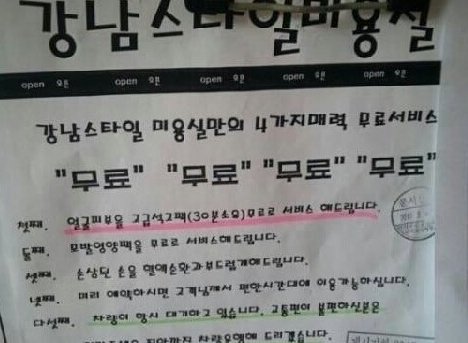 강남스타일미용실
open 오픈 open 오픈 open 오픈 open 오픈 open 오픈
강남스타일 미용실만의 4가지매력 무료서비스
"무료" "무료" "무료" "무료"
첫째. 얼굴피부을 고급석고팩(30분소요)무료로 서비스 해드립니다.
둘째. 모발영양팩을 무료로 서비스해드립니다.
셋째. 손상된 손을 혈액순환과부드럽게해드립니다.
넷째. 미리 예약하시면 고객님께서 편한시간대에 이용가능하십니다.
다섯째. 차량이 항시 대기하고 있습니다. 교통편이 불편하신분은
차량운행해 드리겠습니다.